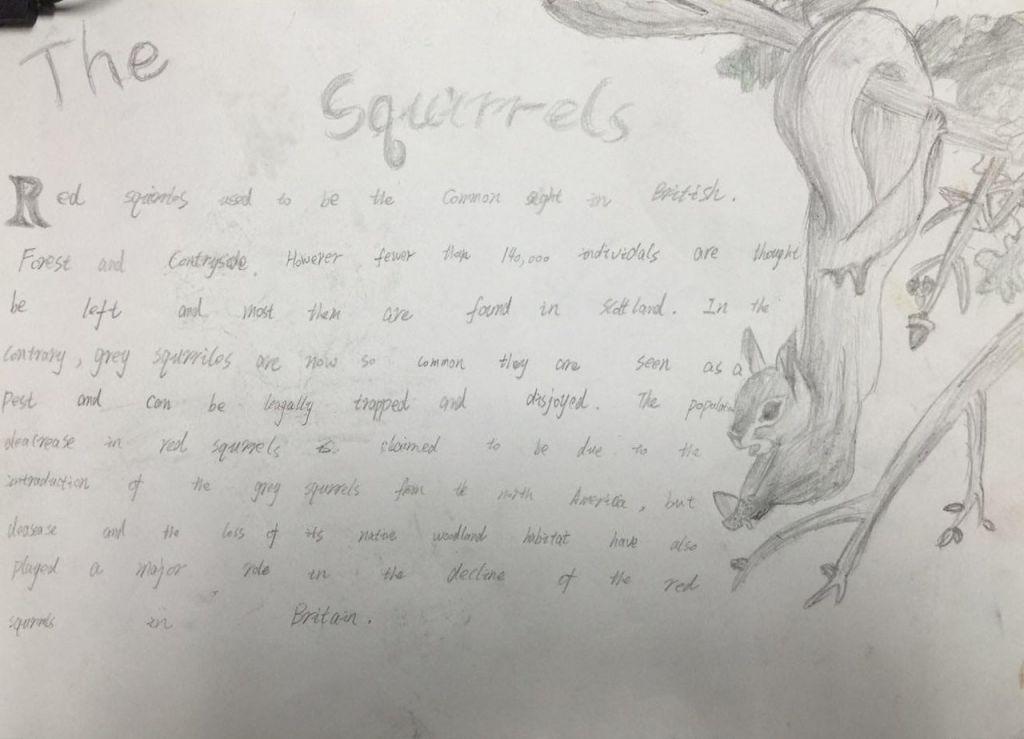 The
Squirrels
Red squirrles used to be the Common sight in British.
Forest and Contryside. However fewer than 140,000 individals are thought
be left and most them are found in Scottland. In the
Contrary, grey squrriles are now so common they are seen as a
Pest and can be leagally trapped and disjoyed. The population
deacrease in red squrrels is claimed to be due to the
intraduction of the grey squrrels from the north America, but
deasase and the loss of its native woodland habitat have also
played a major role in the decline of the red
squrrels in Britain.